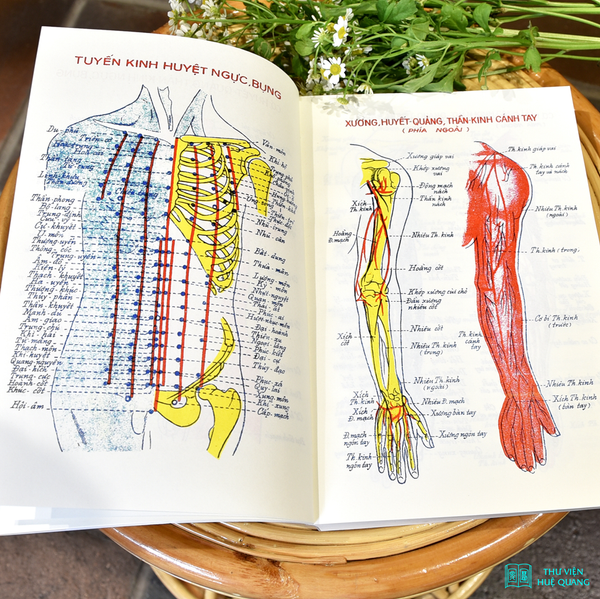 TUYẾN KINH HUYỆT NGỰC, BỤNG
Du-phủ
Thần-phong
Bộ-lang
Trung-đình
Cưu-vỹ
Cự-khuyết
U-môn
Thượng-uyển
Thông-cốc
Trung-uyển
Âm-đô
Kiến-lý
Thạch-khuyết
Hạ-uyển
Thương-khúc
Thủy-phân
Thần-khuyết
Manh-du
Âm-giao
Trung-chú
Khí-hải
Tứ-mãng
Thạch-môn
Khí-huyệt
Quang-nguyên
Đại-kích
Trung-cực
Hoành-cốt
Khúc-cốt
Hội-âm
Vân-môn
Khí-hộ
Nhũ-trung
Nhũ-căn
Bất-dung
Thừa-mãn
Lương-môn
Kỳ-môn
Nhật-nguyệt
Quan-môn
Thái-ất
Phúc-ai
Hoạt-nhục-môn
Đại-hoành
Thiên-xu
Ngoại-lăng
Phúc-kết
Đại-cự
Thủy-đạo
Phúc-xá
Quy-lai
Xung-môn
Khí-xung
Cấp-mạch
XƯƠNG, HUYẾT-QUẢNG, THẦN-KINH CÁNH TAY
( PHÍA NGOÀI )
Xương giáp vai
Khép xương
vai
Động mạch
nách
Thần kinh
nách
Xích
Th. kinh
Hoãng
Đ.mạch
Nhiêu Th. kinh
Hoãng cốt
Khép xương cùi chỏ
Đầu xương
nhiêu cốt
Xích
cốt
Nhiêu cốt
Nhiêu Th. kinh
(trong)
Nhiêu Th.kinh
(ngoài)
Xích
Th. kinh
Xích
Đ. mạch
Nhiêu Đ. mạch
Xương bàn tay
Đ. mạch
ngón tay
Xương ngón tay
Th. kinh
ngón tay
Th. kinh giáp vai
Th. kinh cánh
tay và nách
Nhiêu Th. kinh
(ngoài)
Th. kinh (trong)
Cơ bì Th. kinh
(trước)
Th. kinh
cánh
tay
Nhiêu Th. Kinh
Xích Th. kinh
(bàn tay)
THƯ VIỆN
HUỆ QUANG